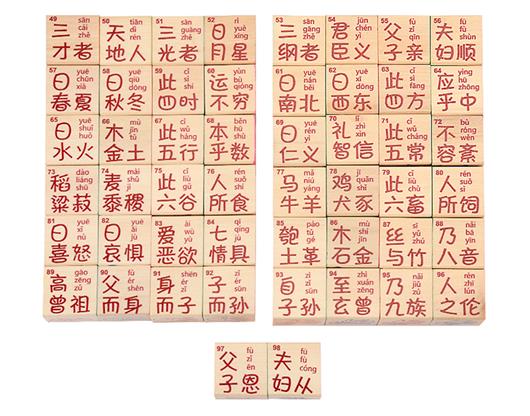 49 三才者 sān cái zhě
50 天地人 tiān dì rén
51 三光者 sān guāng zhě
52 日月星 rì yuè xīng
53 三纲者 sān gāng zhě
54 君臣义 jūn chén yì
55 父子亲 fù zǐ qīn
56 夫妇顺 fū fù shùn
57 曰春夏 yuē chūn xià
58 曰秋冬 yuē qiū dōng
59 此四时 cǐ sì shí
60 运不穷 yùn bù qióng
61 曰南北 yuē nán běi
62 曰西东 yuē xī dōng
63 此四方 cǐ sì fāng
64 应乎中 yìng hū zhōng
65 曰水火 yuē shuǐ huǒ
66 木金土 mù jīn tǔ
67 此五行 cǐ wǔ háng
68 本乎数 běn hū shù
69 曰仁义 yuē rén yì
70 礼智信 lǐ zhì xìn
71 此五常 cǐ wǔ cháng
72 不容紊 bù róng wěn
73 稻粱菽 dào liáng shū
74 麦黍稷 mài shǔ jì
75 此六谷 cǐ liù gǔ
76 人所食 rén suǒ shí
77 马牛羊 mǎ niú yáng
78 鸡犬豕 jī quǎn shǐ
79 此六畜 cǐ liù chù
80 人所饲 rén suǒ sì
81 曰喜怒 yuē xǐ nù
82 曰哀惧 yuē āi jù
83 爱恶欲 ài wù yù
84 七情具 qī qíng jù
85 匏土革 páo tǔ gé
86 木石金 mù shí jīn
87 丝与竹 sī yǔ zhú
88 乃八音 nǎi bā yīn
89 高曾祖 gāo zēng zǔ
90 父而身 fù ér shēn
91 身而子 shēn ér zǐ
92 子而孙 zǐ ér sūn
93 自子孙 zì zǐ sūn
94 至玄曾 zhì xuán zēng
95 乃九族 nǎi jiǔ zú
96 人之伦 rén zhī lún
97 父子恩 fù zǐ ēn
98 夫妇从 fū fù cóng